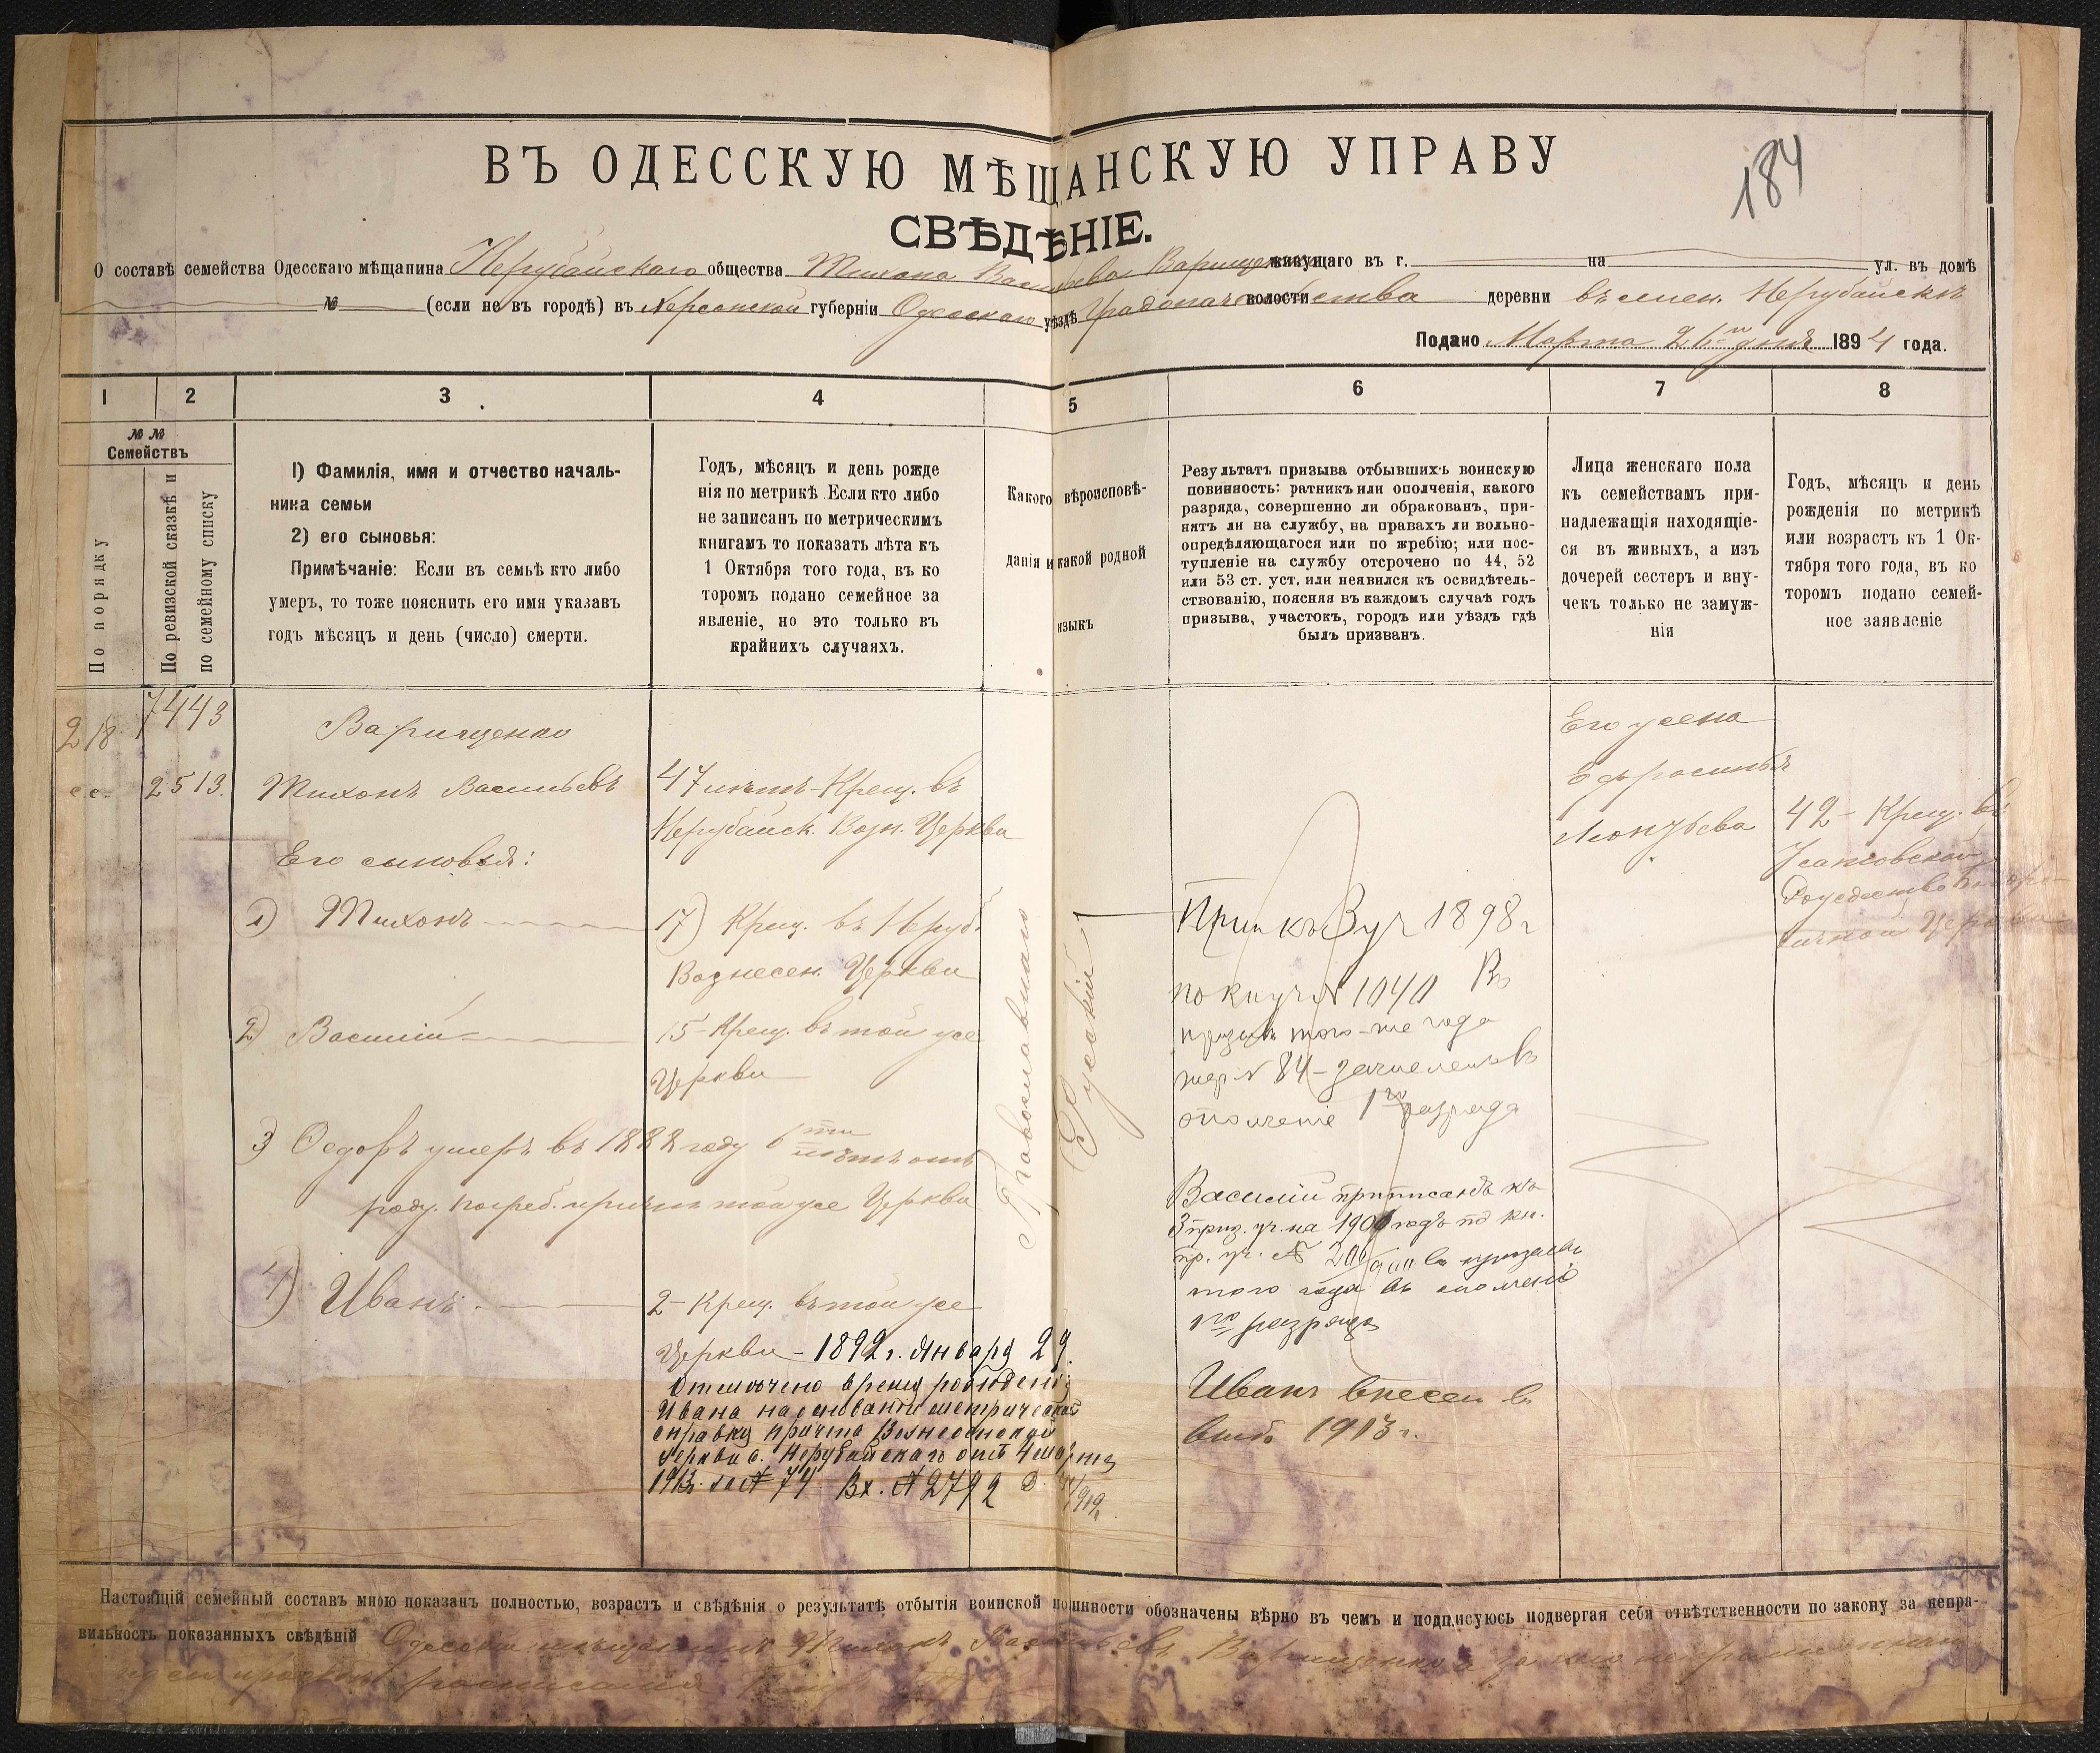 ВЪ ОДЕССКУЮ МѢЩАНСКУЮ УПРАВУ
184
СВѢДѢНІЕ.
О составѣ семейства Одесскаго мѣщанина Нерубайскаго общества Тихона Васильева Варищенко живущаго въ г. на ул. въ домѣ
№ (если не въ городѣ) въ Херсонской губерніи Одесскаго уѣздѣ Градоначальства волости деревни въ селен. Нерубайскѣ
Подано Марта 26го дня 1894 года.
1 2 3 4 5 6 7 8
№ №
Семействъ
По порядку
По ревизской сказкѣ и
по семейному списку
1) Фамилія, имя и отчество началь-
ника семьи
2) его сыновья:
Примѣчаніе: Если въ семьѣ кто либо
умеръ, то тоже пояснить его имя указавъ
годъ мѣсяцъ и день (число) смерти.
Годъ, мѣсяцъ и день рожде
нія по метрикѣ Если кто либо
не записанъ по метрическимъ
книгамъ то показать лѣта къ
1 Октября того года, въ ко
торомъ подано семейное за
явленіе, но это только въ
крайнихъ случаяхъ.
Какого вѣроисповѣ-
данія и какой родной
языкъ
Результатъ призыва отбывшихъ воинскую
повинность: ратникъ или ополченія, какого
разряда, совершенно ли обракованъ, при-
нятъ ли на службу, на правахъ ли вольно-
опредѣляющагося или по жребію; или пос-
тупленіе на службу отсрочено по 44, 52
или 53 ст. уст. или неявился къ освидѣтель-
ствованію, поясняя въ каждомъ случаѣ годъ
призыва, участокъ, городъ или уѣздъ гдѣ
былъ призванъ.
Лица женскаго пола
къ семействамъ при-
надлежащія находящіе-
ся въ живыхъ, а изъ
дочерей сестеръ и вну-
чекъ только не замуж-
нія
Годъ, мѣсяцъ и день
рожденія по метрикѣ
или возрастъ къ 1 Ок-
тября того года, въ ко
торомъ подано семей-
ное заявленіе
218
7443
с.с. 2513.
Варищенко
Тихонъ Васильевъ
Его сыновья:
1) Тихонъ
2) Василій
3) Ѳедоръ умеръ въ 1888 году 6ти лѣтъ отъ
роду. погреб. при той же Церкви
4) Иванъ
47 лѣтъ Крещ. въ
Нерубайск. Возн. Церкви
17) Крещ. въ Неруб.
Вознесен. Церкви
15 Крещ. въ той же
Церкви
2 Крещ. въ той же
Церкви - 1892 г. Января 29.
Отмѣчено время рожденія
Ивана на основаніи метрической
справки причта Вознесенской
церкви с. Нерубайскаго отъ 4 марта
1913г. за № 74 Вх. № 2792
Православнаго
Русскій
Прип къ 3 уч 1898 г
по кн уч № 1040 Въ
призывъ того-же года
жер № 84 - зачисленъ въ
ополченіе 1го разряда
Василій приписанъ къ
3 приз. уч. на 1900 годъ по кн.
пр. уч. №
того года въ ополченіе
1го разряда
Иванъ внесен в
1913 г.
Его жена
Ефросинья
Леонтьева
42 - Крещ. въ
Усатовской
Рождество Богоро-
дичной Церкви
Настоящій семейный составъ мною показанъ полностью, возрастъ и свѣдѣнія о результатѣ отбытія воинской повинности обозначены вѣрно въ чемъ и подписуюсь подвергая себя отвѣтственности по закону за непра-
вильность показанныхъ свѣдѣній Одесскій мѣщанинъ Тихонъ Васильевъ Варищенко а за него неграмотнаго
по его просьбѣ росписался